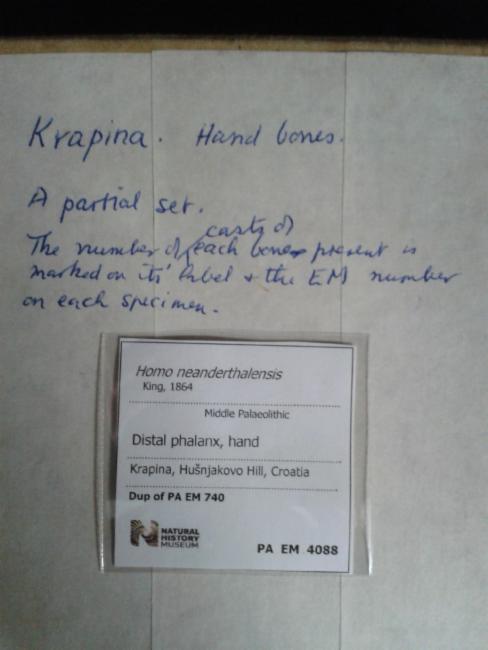 Krapina. Hand bones.
A partial set.
casts of
The number of each bone present is
marked on its' label & the EM number
on each specimen.
Homo neanderthalensis
King, 1864
Middle Palaeolithic
Distal phalanx, hand
Krapina, Hušnjakovo Hill, Croatia
Dup of PA EM 740
NATURAL
HISTORY
MUSEUM
PA EM 4088